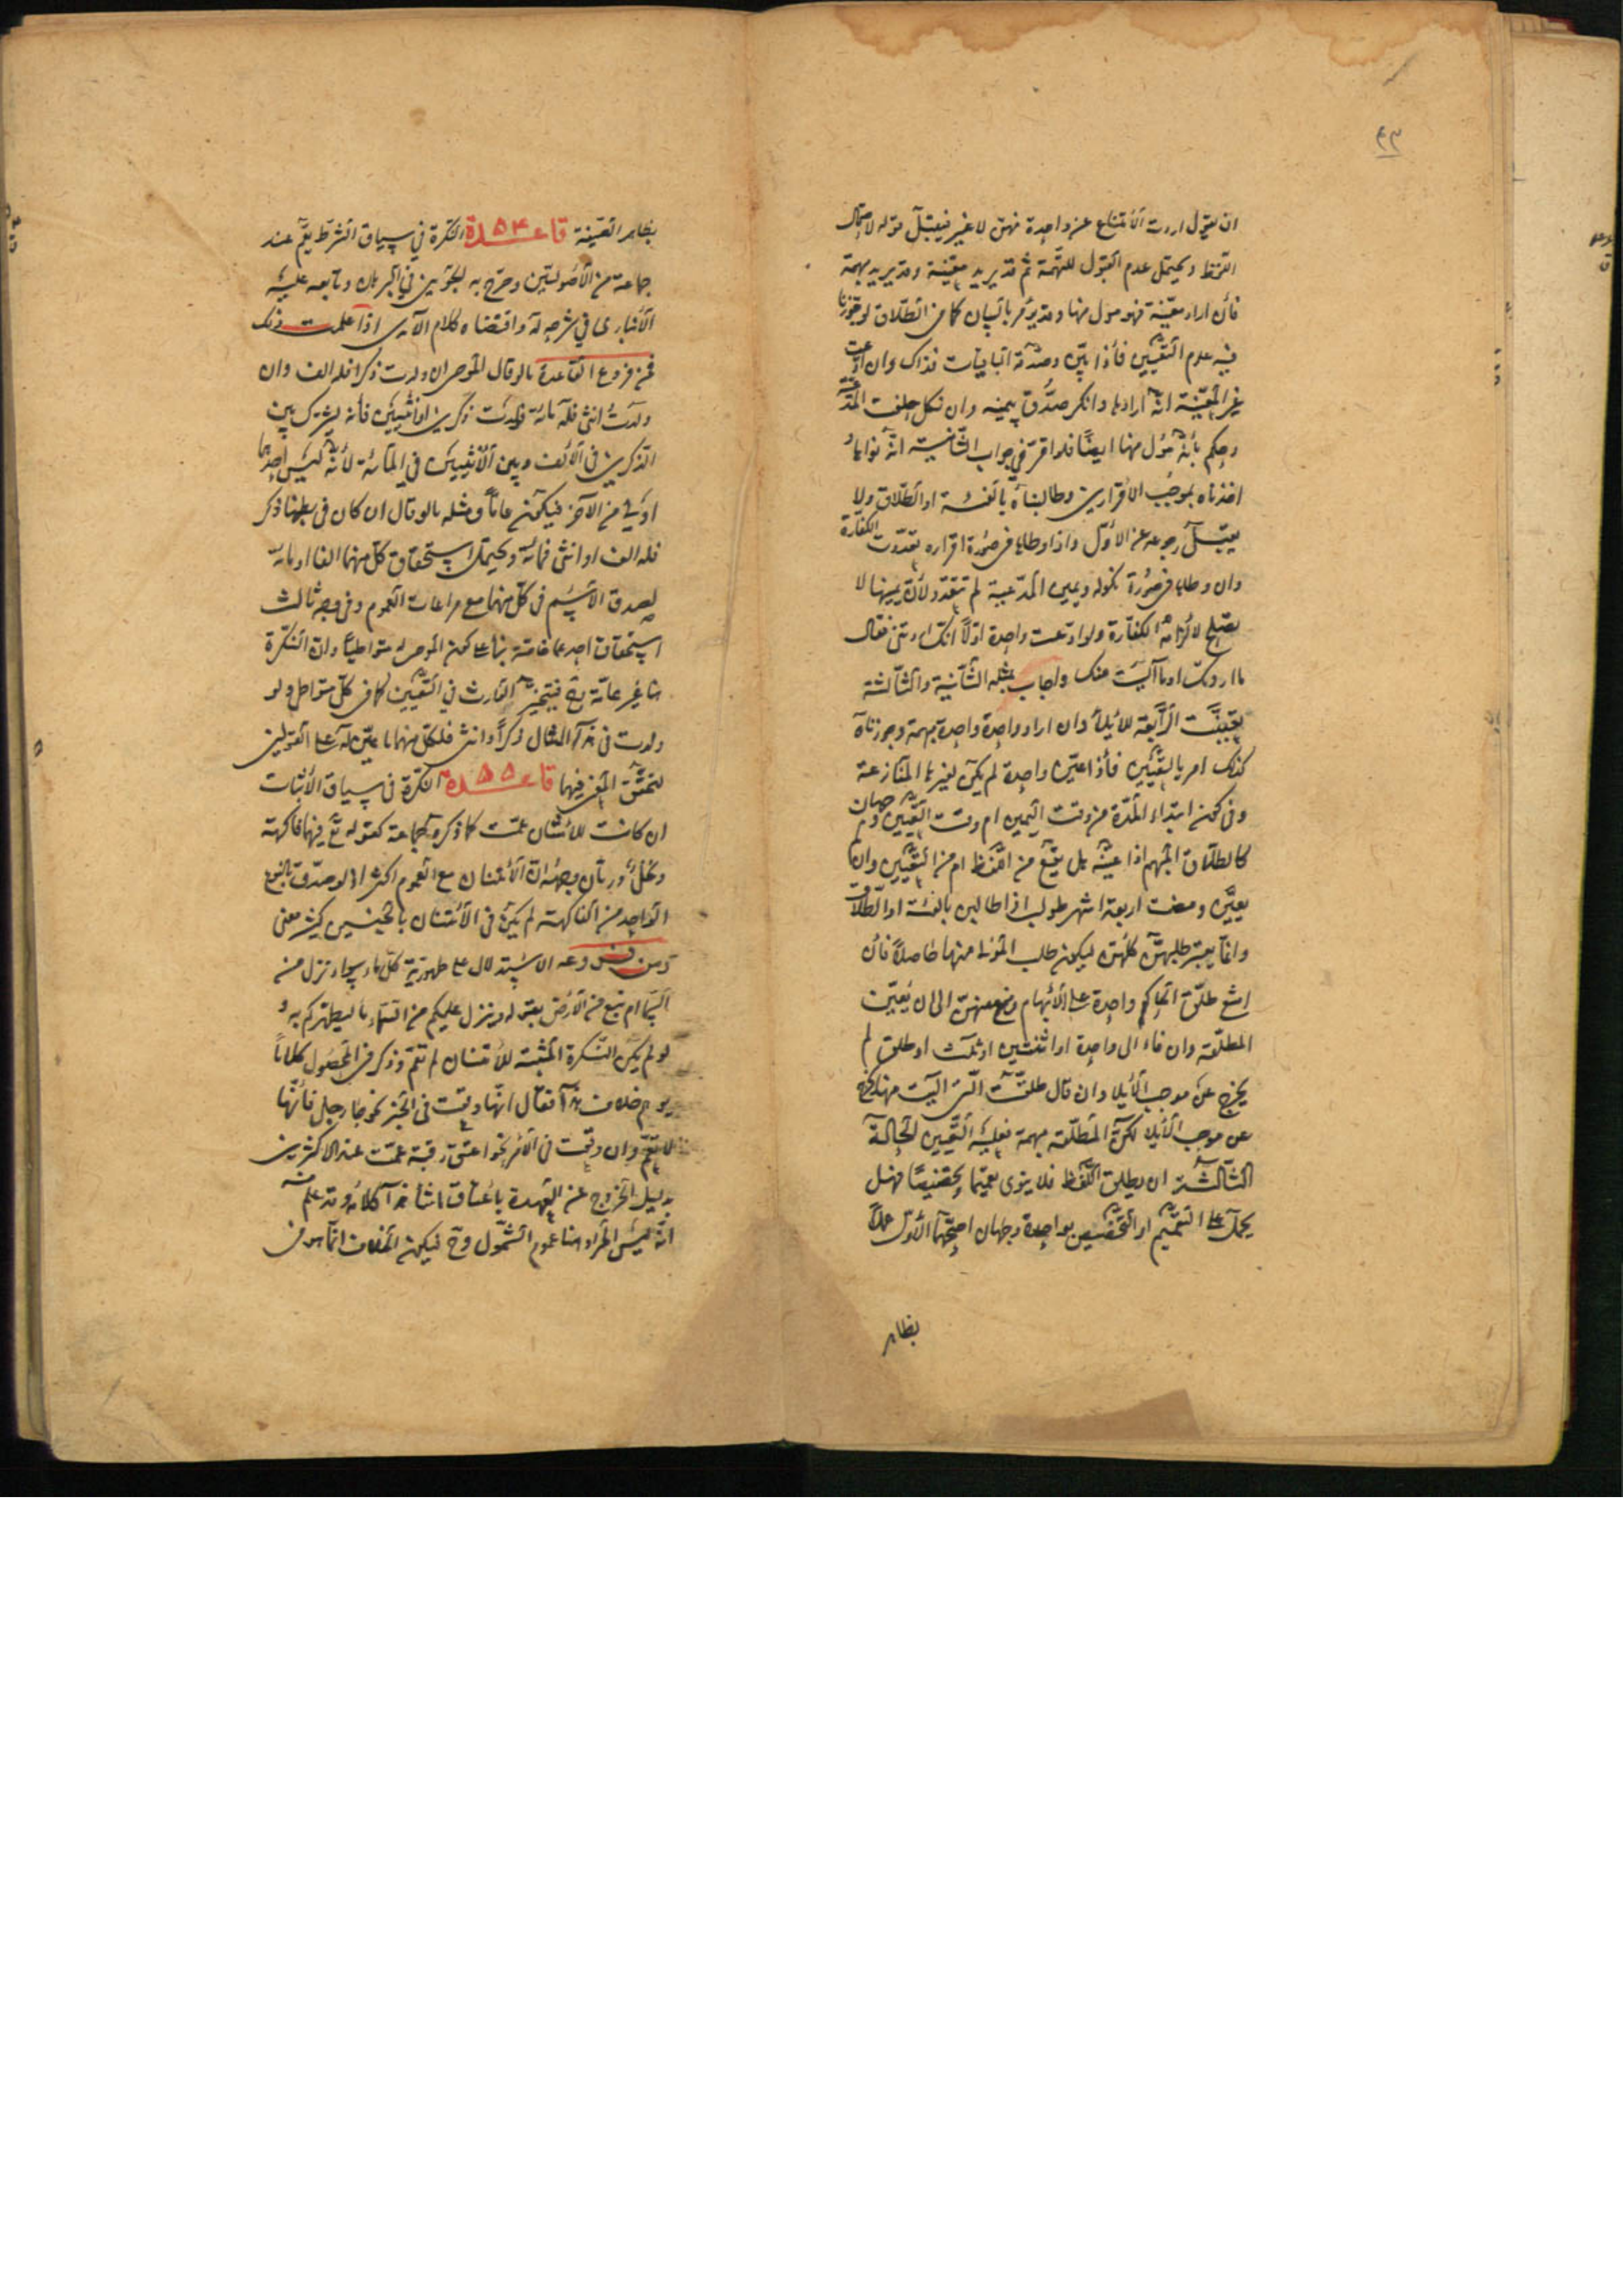 ٤٣
ان يقول اردت الامتناع عن واحدة منهن لا غير فيقبل قوله لاحتمال
اللفظ ويحتمل عدم القبول للتهمة ثم قد يريد معينة وقد يريد مبهمة
فان اراد معينة فهو مول منها ويؤمر بالبيان كما في الطلاق لو جوزنا
فيه عدم التعيين فاذا بين وصدقه الباقيات فذاك وان ادعت
غير المعينة انه ارادها وانكر صدق بيمينه وان نكل حلفت المدعية
وحكم بانه مول منها ايضا فلو اقر في جواب الثانية انه نواها و
اخذناه بموجب الاقرارين وطالبناه بالفئة او الطلاق ولا
يقبل رجوعه عن الاول واذا وطئها في صورة اقراره تعددت الكفارة
وان وطئها في صورة نكوله ويمين المدعية لم تتعدد لان يمينها لا
يصلح لالزامه الكفارة ولو ادعت واحدة اولا انك اردتني فقال
ما اردتك او ما آليت منك واجاب بمثله الثانية والثالثة
تعينت الرابعة للايلاء وان اراد واحدة مبهمة وجوزناه
كذلك امر بالتعيين فاذا عين واحدة لم يكن لغيرها المنازعة
وفي كون ابتداء المدة من وقت اليمين ام وقت التعيين وجهان
كالطلاق المبهم اذا عينه هل يقع من اللفظ ام من التعيين وان لم
يعين ومضت اربعة اشهر طولب اذا طالبن بالفئة او الطلاق
وانما يعتبر طلبهن كلهن ليكون طلب المولى منها حاصلا فان
امتنع طلق الحاكم واحدة على الابهام ومنع منهن الى ان يعين
المطلقة وان فاء الى واحدة او اثنتين او ثلث او طلق لم
يخرج عن موجب الايلاء وان قال طلقت التي آليت منها خرج
عن موجب الايلاء لكن المطلقة مبهمة فعليه التعيين الحالة
الثالثة ان يطلق اللفظ فلا ينوي تعميما ولا تخصيصا فهل
يحمل على التعميم او التخصيص بواحدة وجهان اصحهما الاول عملا
بظاهر
بظاهر الصيغة قاعدة ٥٤ النكرة في سياق الشرط يعم عند
جماعة من الاصوليين وصرح به الجويني في البرهان وتابعه عليه
الانباري في شرحه له واقتضاه كلام الآمدي اذا علمت ذلك
فمن فروع القاعدة ما لو قال الموصي ان ولدت ذكرا فله الف وان
ولدت انثى فله مائة فولدت ذكرين او انثيين فانه يشترك بين
الذكرين في الالف وبين الانثيين في المائة لانه ليس احدهما
اولى من الآخر فيكون عاما ومثله ما لو قال ان كان في بطنها ذكر
فله الف او انثى فمائة ويحتمل استحقاق كل منهما الفا او مائة
لصدق الاسم في كل منهما مع مراعات العموم وفي وجه ثالث
استحقاق احدهما خاصة بناء على كون الموصى له متواطيا وان النكرة
هنا غير عامة فيتخير الوارث في التعيين كما في كل متواطي ولو
ولدت في هذا المثال ذكرا وانثى فلكل منهما ما عين له على القولين
لتحقق المعنى فيهما قاعدة ٥٥ النكرة في سياق الاثبات
ان كانت للامتنان عمت كما ذكره جماعة كقوله تع فيهما فاكهة
ونخل ورمان ووجهه ان الامتنان مع العموم اكثر اذ لو صدق بالنوع
الواحد من الفاكهة لم يكن في الامتنان بالجنسين كثير معنى
ومن فروعه الاستدلال على طهورية كل ماء سواء نزل من
السماء ام نبع من الارض بقوله وينزل عليكم من السماء ماء ليطهركم به و
لو لم يكن النكرة المثبتة للامتنان لم تعم وذكر في المحصول كلاما
يوهم خلاف هذا فقال انها وقعت في الخبر نحو جاء رجل فانها
لا تعم وان وقعت في الامر نحو اعتق رقبة عمت عند الاكثرين
بدليل الخروج عن العهدة باعتاق ما شاء هذا كلامه وقد علم منه
انه ليس المراد هنا عموم الشمول وح فيكون الخلاف انما هو في